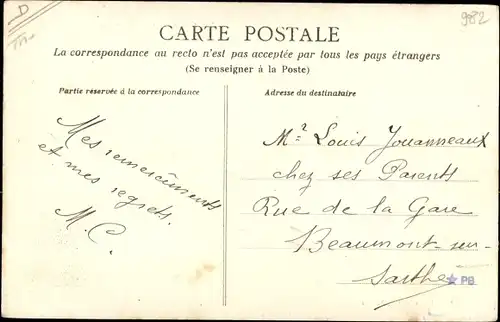 D
982
CARTE POSTALE
La correspondance au recto n'est pas acceptée par tous les pays étrangers
(Se renseigner à la Poste)
Partie réservée à la correspondance
Mes remerciements
et mes regrets.
M. C.
Adresse du destinataire
Mr Louis Jouanneaux
chez ses Parents
Rue de la Gare
Beaumont-sur-
Sarthe
PB